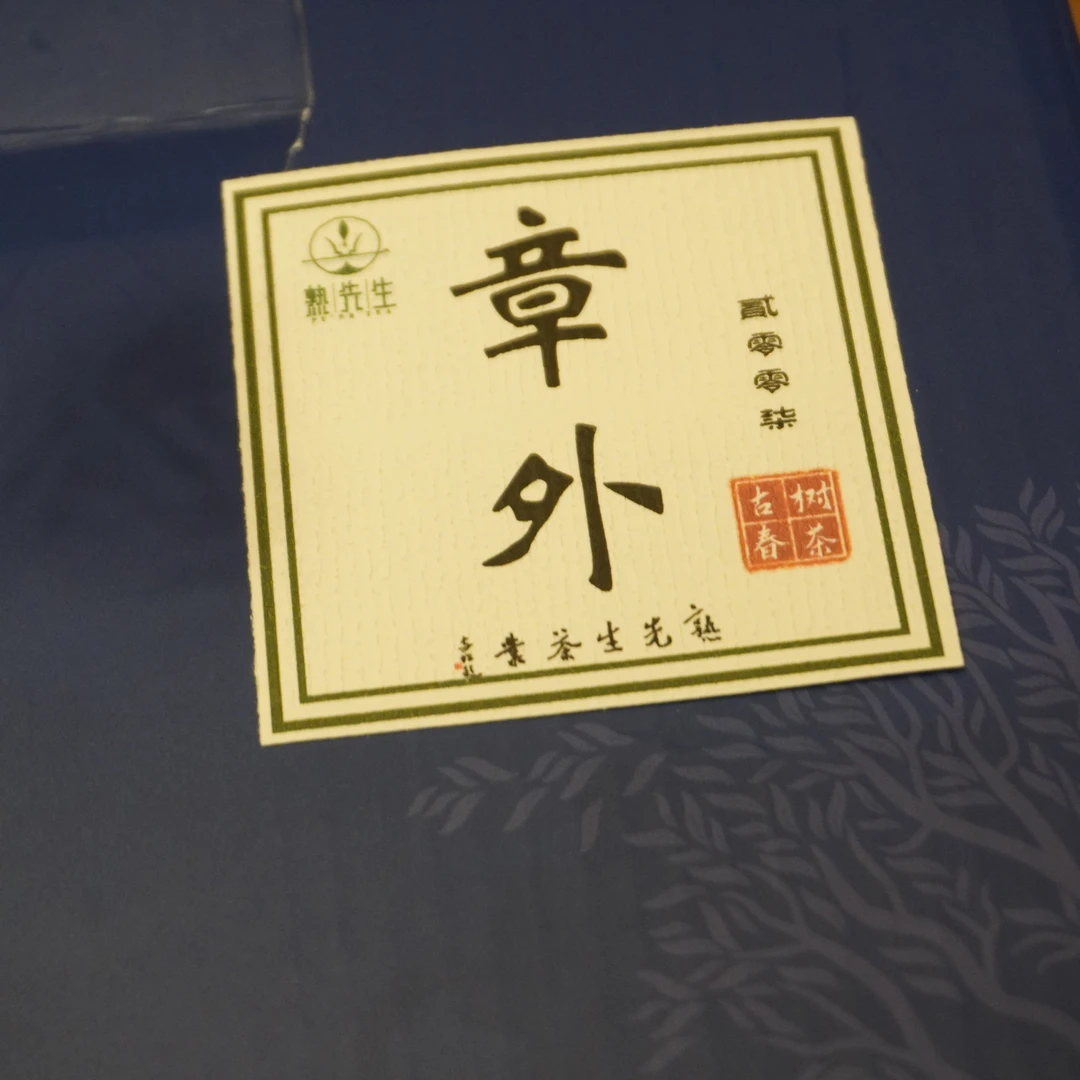 熟|先|生
章外
贰零零柒
古树
春茶
熟先生茶业